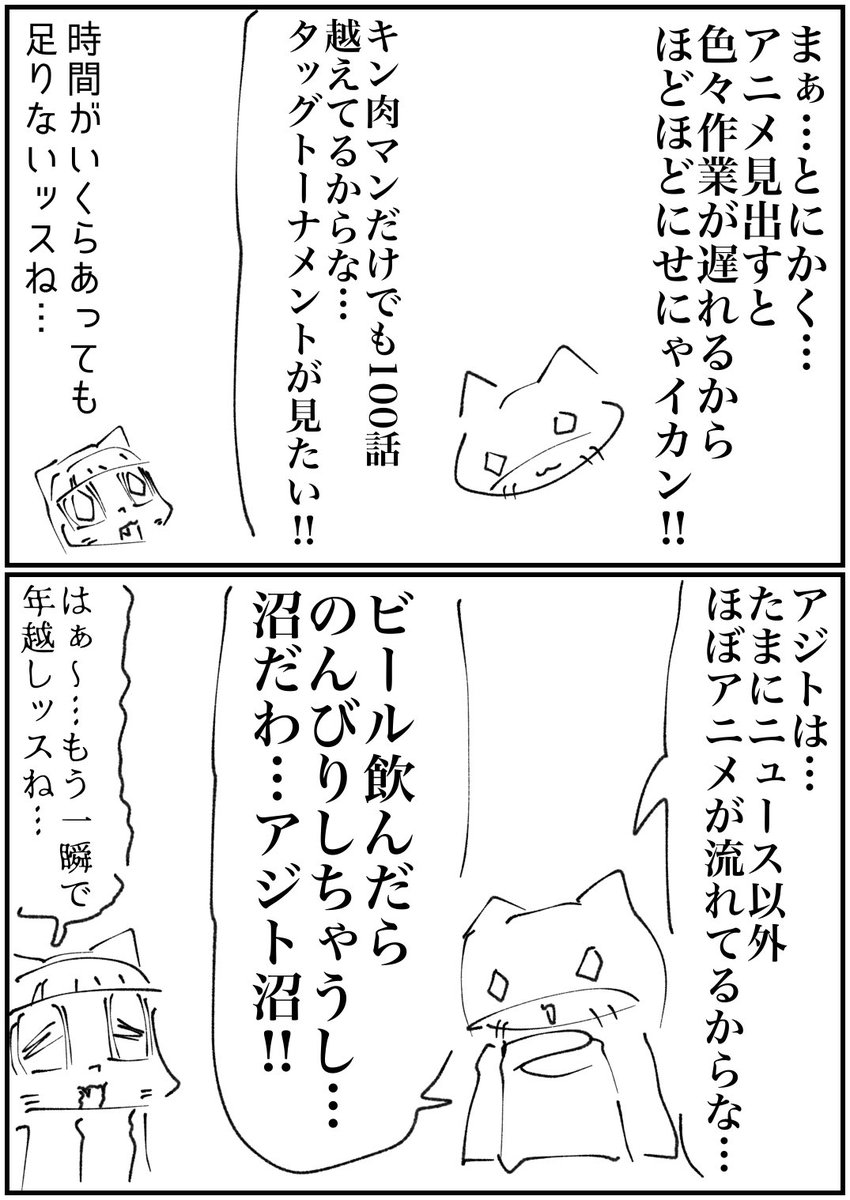 まぁ…とにかく…
アニメ見出すと
色々作業が遅れるから
ほどほどにせにゃイカン!!
キン肉マンだけでも100話
越えてるからな…
タッグトーナメントが見たい!!
時間がいくらあっても
足りないッスね…
アジトは…
たまにニュース以外
ほぼアニメが流れてるからな…
ビール飲んだら
のんびりしちゃうし…
沼だわ…アジト沼!!
はぁ〜…もう一瞬で
年越しッスね…